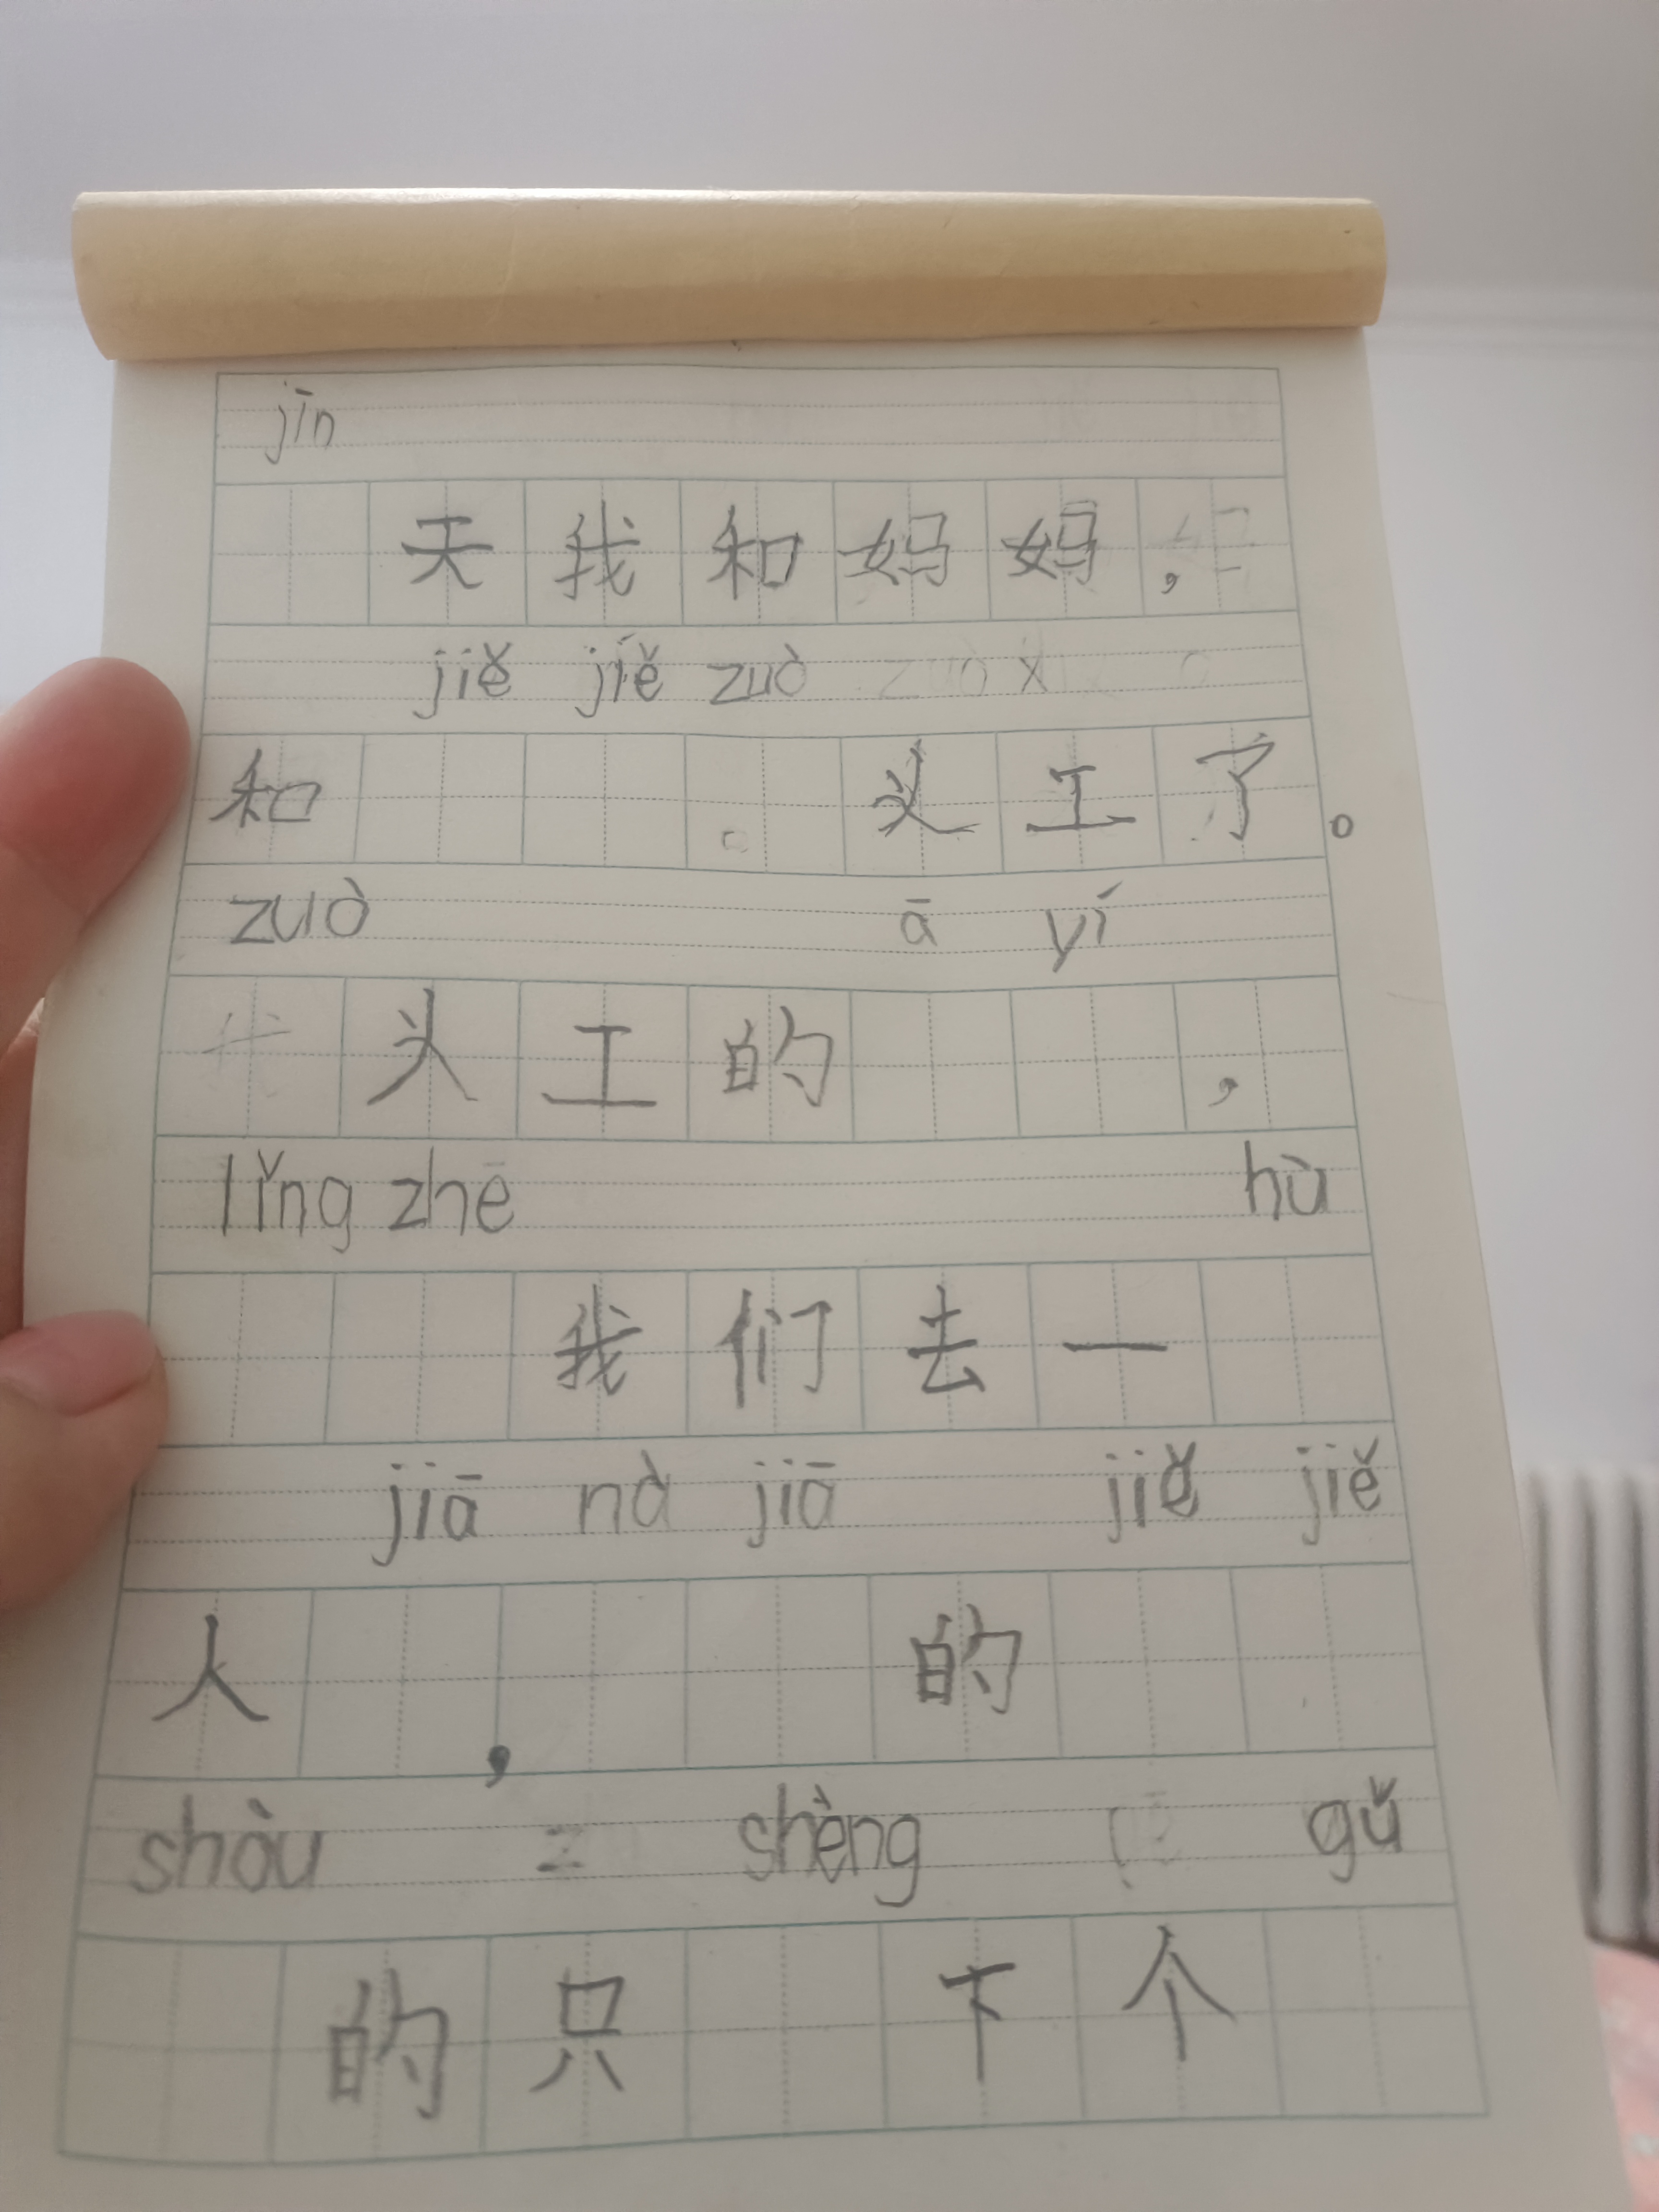 jīn
天我和妈妈，
jiě jiě zuò
和头工了。
zuò ā yí
头工的，
lǐng zhē hù
我们去一
jiā nà jiā jiě jiě
人，的
shòu shèng gǔ
的只下个